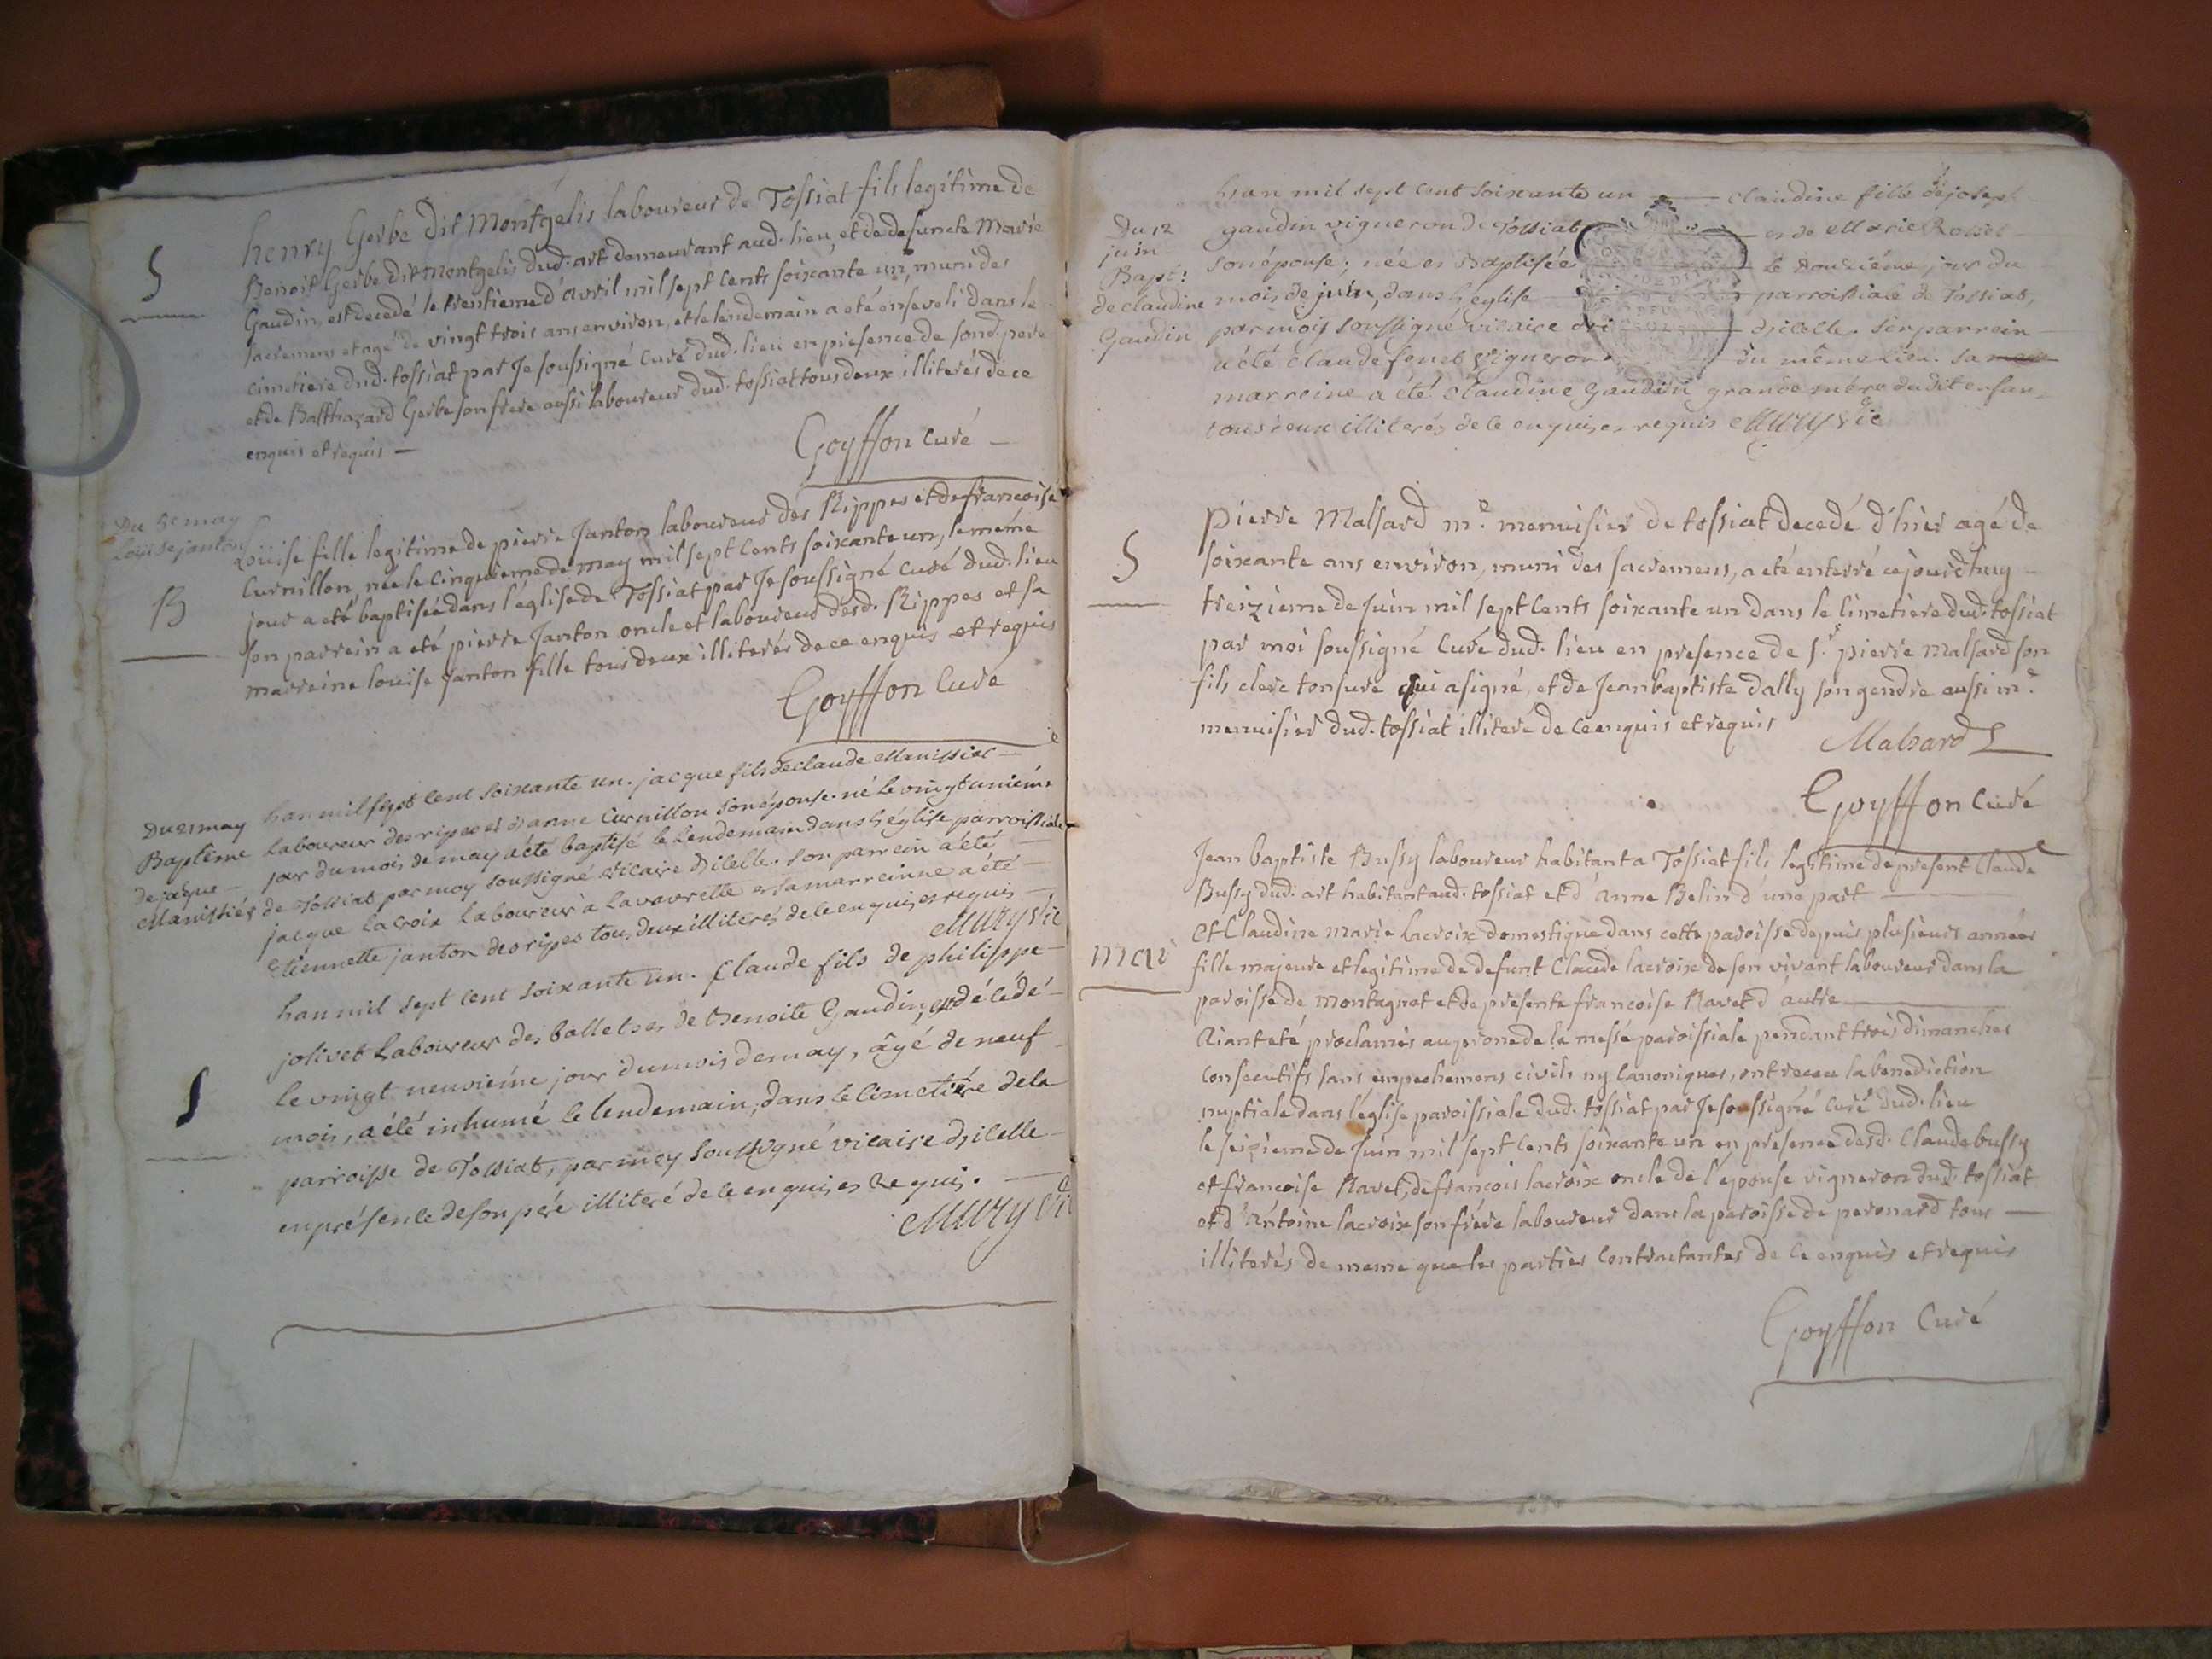 S
henry Gerbe dit Montgelis laboureur de Tossiat fils legitime de
Benoit Gerbe dit montgelis dud. art demeurant aud. lieu, et de defuncte Marie
Gaudin, est decedé le trentieme d'avril mil sept cents soixante un, muni des
sacremens et agé de vingt trois ans environ, et le lendemain a eté enseveli dans le
cimetiere dud. tossiat par Je soussigné curé dud. lieu en presence de sond. pere
et de Balthazard Gerbe son frere aussi laboureur dud. tossiat tous deux illiterés de ce
enquis et requis —
Goyffon curé —
Du 5e may
Loüise janton
B
Loüise fille legitime de pierre Janton laboureur des Rippes et de francoise
Curnillon, née le cinquieme de may mil sept cents soixante un, le même
jour a eté baptisée dans l'église de Tossiat par Je soussigné curé dud. lieu
son parrein a eté pierre Janton oncle et laboureur desd. Rippes et sa
marreine louise Janton fille tous deux illiterés de ce enquis et requis
Goyffon Curé
Du 21 may
Baptême
de jaque —
Manissier
han mil sept cent soixante un. jacque fils de claude Manissier —
Laboureur des ripes et d'anne Curnillon son épouse. né le vingt unième
jour du mois de may a été baptisé le lendemain dans l'église parroissiale
de Tossiat par moy soussigné vicaire dicelle. son parrein a été
jacque lacroix Laboureur à Lavavrette et sa marreinne a été —
Etiennette janton des ripes tous deux illiterés de ce enquis et requis —
Mury Vic
S
han mil sept cent soixante un. Claude fils de philippe —
jolivet Laboureur des ballets et de Benoite Gaudin, est décédé —
le vingt neuvième jour du mois de may, âgé de neuf —
mois, a été inhumé le lendemain, dans le cimetière de la
parroisse de Tossiat, par moy soussigné vicaire dicelle —
en présence de son père illiteré de ce enquis et requis. —
Mury Vic
Du 12
juin
Bapt:
de claudine
Gaudin
han mil sept cent soixante un — claudine fille de joseph
gaudin vigneron de Tossiat — et de Marie Rosset —
son épouse; née et Baptisée — le douzième jour du
mois de juin, dans l'église — parroissiale de Tossiat,
par moy soussigné vicaire — dicelle. son parrein —
a été claude fenet vigneron — du même lieu. sa
marreine a été claudine gaudin grande mère dudit enfant,
tous deux illiterés de ce enquis et requis Mury Vic
S
pierre Malsard me. menuisier de tossiat decedé d'hier agé de
soixante ans environ, muni des sacremens, a eté enterré cejourd'huy —
treizieme de Juin mil sept cents soixante un dans le cimetiere dud. tossiat
par moi soussigné curé dud. lieu en presence de sr. pierre malsard son
fils clerc tonsuré qui a signé, et de Jean baptiste dally son gendre aussi me.
menuisier dud. tossiat illiteré de ce enquis et requis
Malsard
Goyffon curé
mari
Jean baptiste Bussy laboureur habitant a Tossiat fils legitime de present Claude
Bussy dud. art habitant aud. tossiat et d'anne Belin d'une part —
Et Claudine marie lacroix domestique dans cette paroisse depuis plusieurs années
fille majeure et legitime de defunt Claude lacroix de son vivant laboureur dans la
paroisse de montagnat et de presente francoise Ravet d'autre —
Aiant eté proclamés au prone de la messe paroissiale pendant trois dimanches
consecutifs sans empechemens civils ny canoniques, ont receu la benediction
nuptiale dans l'église paroissiale dud. tossiat par Je soussigné curé dud. lieu
le seizieme de Juin mil sept cents soixante un en presence desd. Claude bussy
et francoise Ravet, de francois lacroix oncle de l'épouse vigneron dud. tossiat
et d'Antoine lacroix son frère laboureur dans la paroisse de peronard tous —
illiterés de meme que les parties contractantes de ce enquis et requis
Goyffon Curé